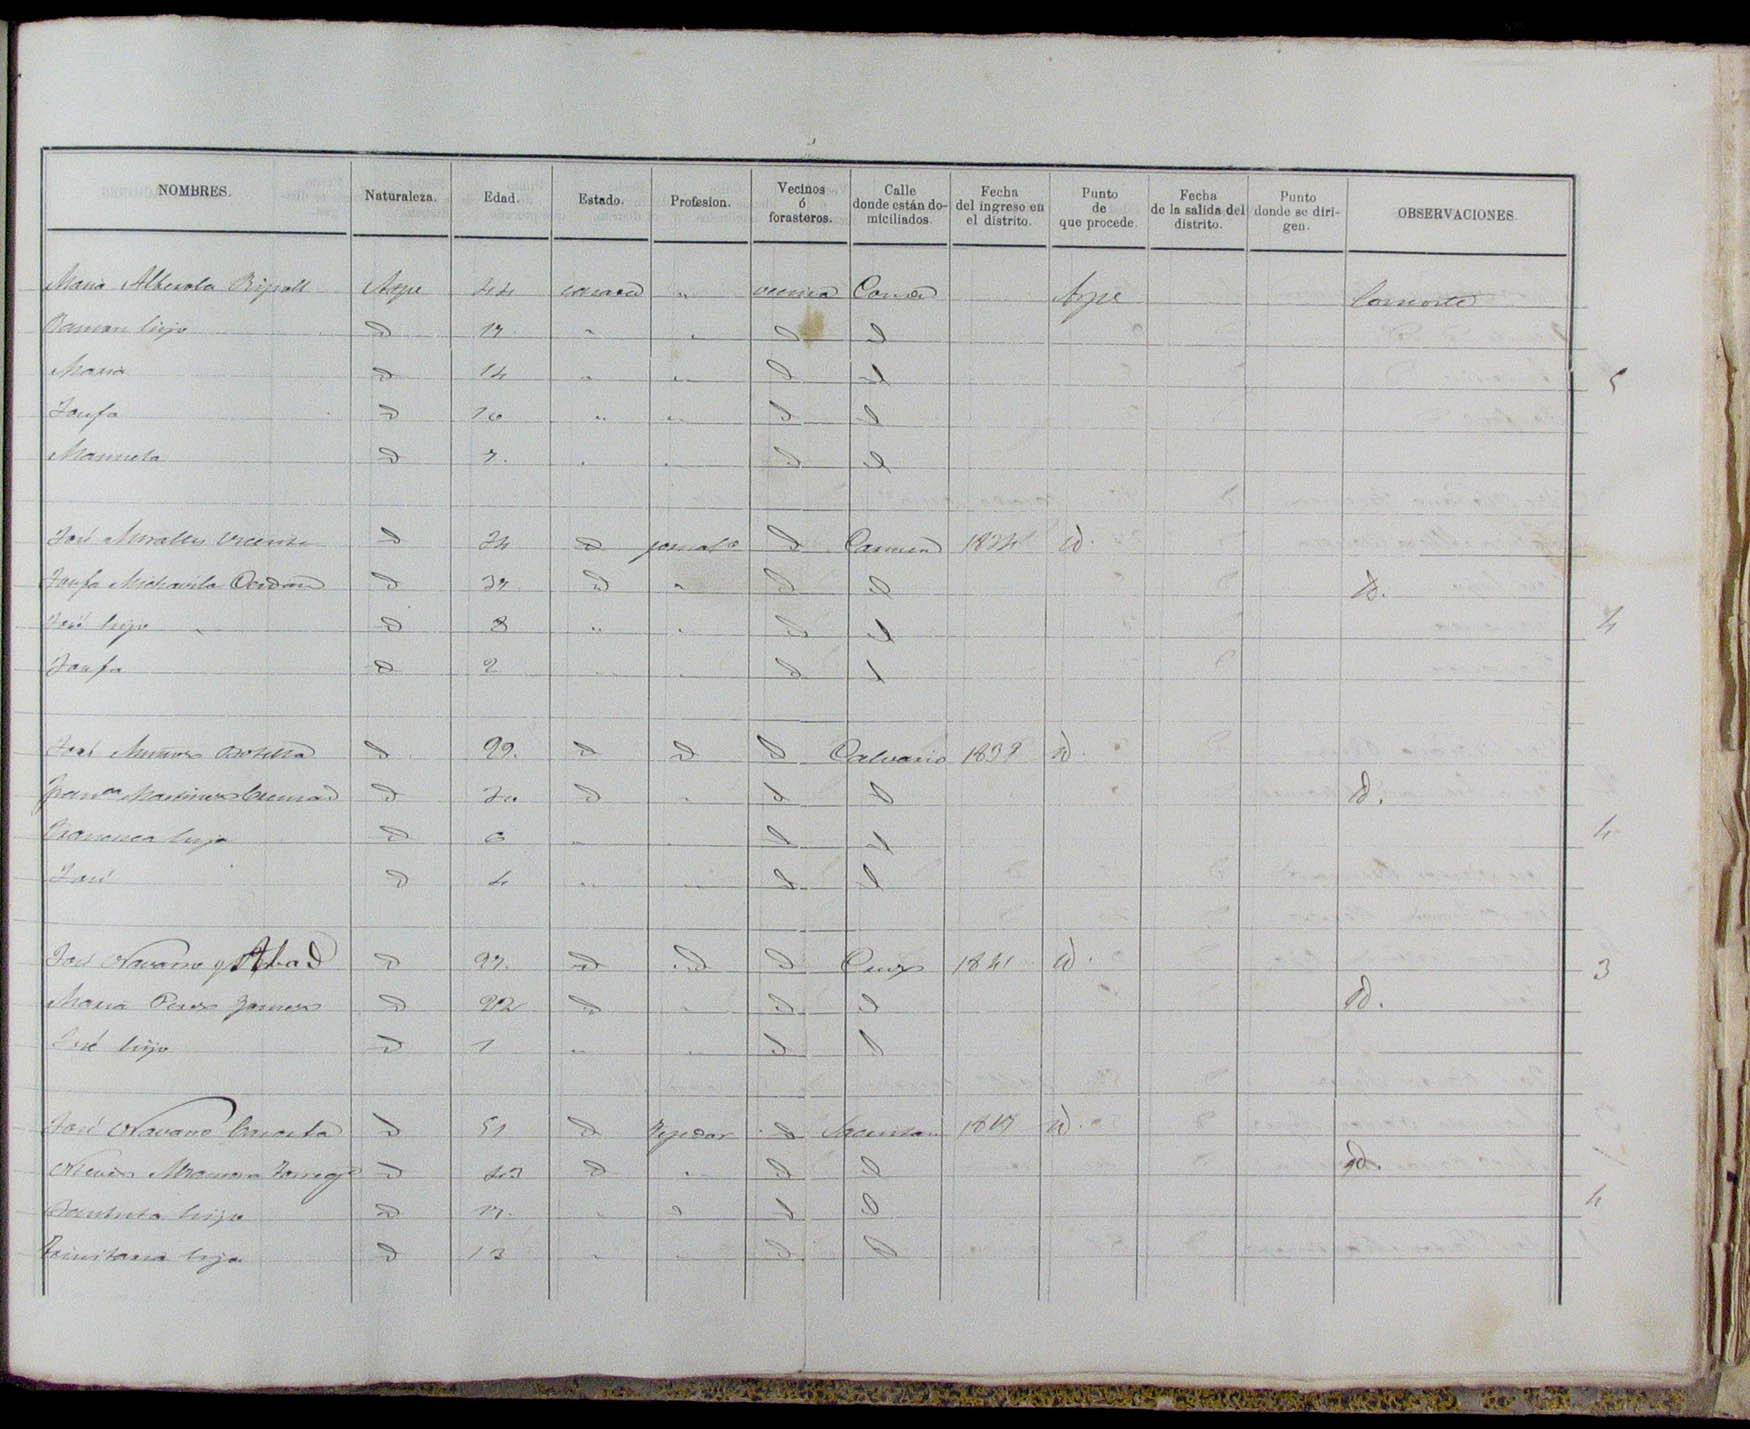 NOMBRES. Naturaleza. Edad. Estado. Profesion. Vecinos ó forasteros. Calle donde están domiciliados. Fecha del ingreso en el distrito. Punto de que procede. Fecha de la salida del distrito. Punto donde se dirigen. OBSERVACIONES.
Maria Alberola Ripoll Aspe 44 casada " vecina Aspe Consorte
Ramon hijo D 17 " " D D
Maria D 14 " " D D 5
Josefa D 10 " " D D
Manuela D 7. " " D D
José Miralles Vicente D 34 D jornalo D Carmen id.
Josefa D 37 D " D D id.
José hijo D 8 " " D D 4
Josefa D 2 " " D D
José D 29. D D D Calvario id.
Franca Martinez D 30 D " D D id.
Francisca hija D 6 " " D D 4
José D 4 " " D D
José Navarro y Abad D 27. D D D Cruz 1841 id. 3
Maria Perez D 22 D " D D id.
José hijo D 1 " " D D
José Navarro D 51 D Tejedor D id.
Nieves D 43 D " D D id.
hija D 17. " " D D 4
Trinitaria hija D 13 " " D D